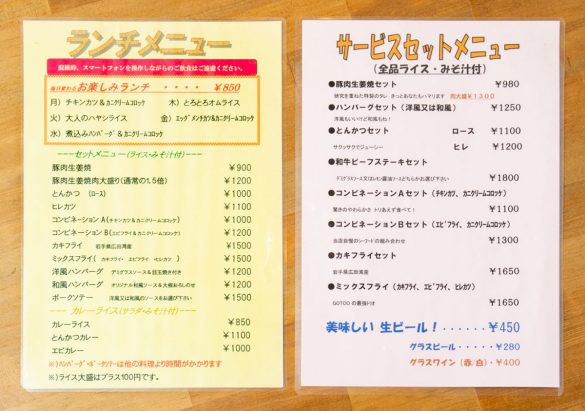 ランチメニュー
混雑時、スマートフォンを操作しながらのご飲食はご遠慮ください。
毎日変わるお楽しみランチ ・・・・ ￥850
月）チキンカツ＆カニクリームコロッケ 木）とろとろオムライス
火）大人のハヤシライス 金）エッグメンチカツ＆カニクリームコロッケ
水）煮込みハンバーグ＆カニクリームコロッケ
---セットメニュー（ライス・みそ汁付）
豚肉生姜焼 ￥900
豚肉生姜焼肉大盛り（通常の1.5倍） ￥1200
とんかつ （ロース） ￥1000
ヒレカツ ￥1100
コンビネーションA（チキンカツ＆カニクリームコロッケ） ￥1000
コンビネーションB（エビフライ＆カニクリームコロッケ） ￥1200
カキフライ 岩手県広田湾産 ￥1500
ミックスフライ（カキフライ・ エビフライ ・ヒレカツ） ￥1500
洋風ハンバーグ デミグラスソース＆目玉焼き付き ￥1200
和風ハンバーグ オリジナル和風ソース＆大根おろしのせ ￥1200
ポークソテー 洋風又は和風のソースをお選び下さい ￥1500
---カレーライス（サラダ・みそ汁付）
カレーライス ￥850
とんかつカレー ￥1100
エビカレー ￥1000
※）ハンバーグ・ポークソテーは他の料理より時間がかかります
※）ライス大盛はプラス100円です。
サービスセットメニュー
（全品ライス・みそ汁付）
●豚肉生姜焼セット ￥980
研究を重ねた特製のタレ きっとあなたもハマります 肉大盛￥1300
●ハンバーグセット（洋風又は和風） ￥1250
洋風もいいけど和風もね！
●とんかつセット ロース ￥1100
サクッサクでジューシー ヒレ ￥1200
●和牛ビーフステーキセット
デミグラスソース又はレモン醤油ソースどちらかお選び下さい ￥1800
●コンビネーションAセット（チキンカツ、カニクリームコロッケ）
驚きのやわらかさ トリあえず食べて！ ￥1100
●コンビネーションBセット（エビフライ、カニクリームコロッケ）
当店自慢のシーフードの組み合わせ ￥1300
●カキフライセット
岩手県広田湾産 ￥1650
●ミックスフライ（カキフライ、エビフライ、ヒレカツ）
GOTOOの最強トリオ ￥1650
美味しい 生ビール！・・・・・・￥450
グラスビール・・・・・￥280
グラスワイン（赤/白）・￥400